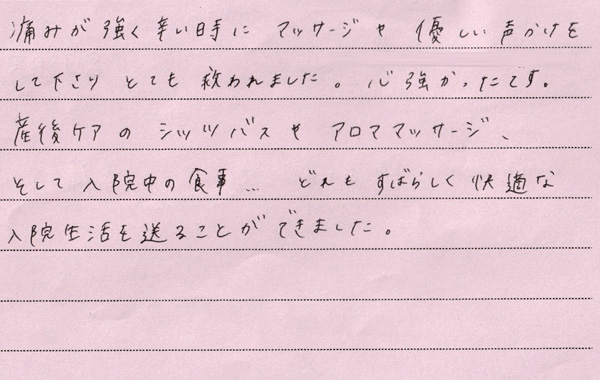 痛みが強く辛い時に マッサージや 優しい声かけを
して下さり とても 救われました。心強かったです。
産後ケアの シッツバスや アロママッサージ、
そして入院中の食事… どれも すばらしく 快適な
入院生活を送ることができました。